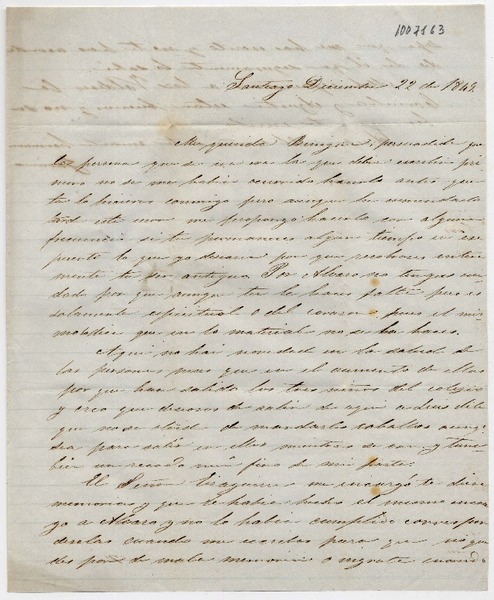 1007163
Santiago Diciembre 22 de 1849.
Mi querida Benigna: persuadida que
la persona que se va es la que debe escribir pri
mero no se me habia ocurrido hacerlo antes que
tu lo hicieras conmigo pero aunque he enmendado
tarde este error me propongo hacerlo con alguna
frecuencia si tu permaneces algun tiempo en ese
puerto lo que yo desearia por que recobrases entera
mente tu ser antiguo. Por Alvaro no tengas cui
dado por que aunque tu le haces falta pero es
solamente espiritual o del corazon, pues el
que en lo material no se la hace.
Aqui no hai novedad en la salud de
las personas mas que en el aumento de ellas
por que han salido los tres niños del colegio
y creo que deseosos de salir de aqui a dias dile
que no se olvide de mandarles caballos aunq.
sea para salir en ellos mientras se van y tam
bien un recado mui fino de mi parte.
El Señor Eisaguirre me encargó te diera
memorias y que le habia hecho el mismo encar
go a Alvaro y no lo habia cumplido
cuando me escribas para que no que
des por de mala memoria o ingrata cuando